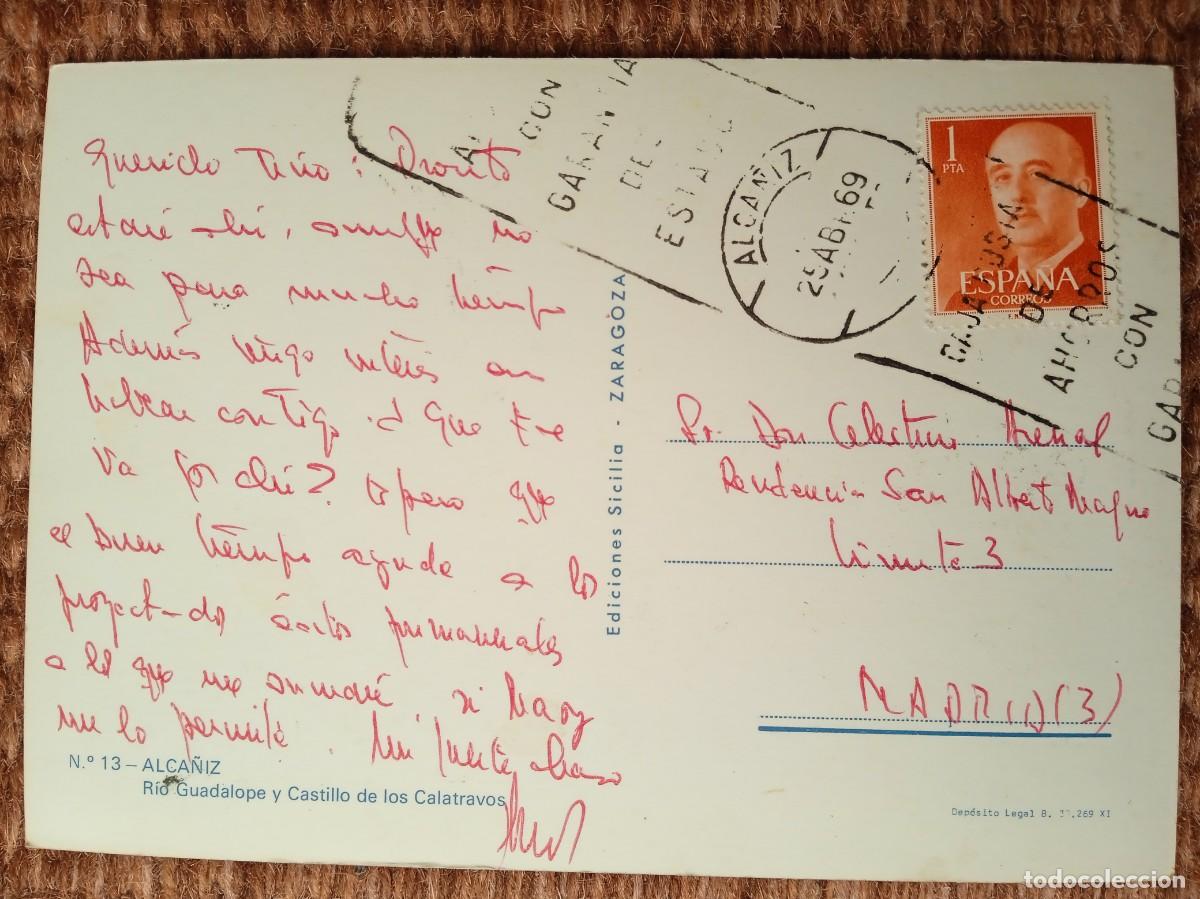 Querido Tino: Pronto
estaré ahí, aunque no
sea para mucho tiempo
Además tengo interés en
hablar contigo. ¿Que tal
va por ahí? Espero que
el buen tiempo ayude a los
proyectados éxitos primaverales
a los que me sumaré, si Mary
me lo permite. Un fuerte abrazo
N.º 13 - ALCAÑIZ
Río Guadalope y Castillo de los Calatravos
Ediciones Sicilia - ZARAGOZA
CON
GARANTIA
DEL
ESTADO
ALCAÑIZ
25 ABR 69
1
PTA
ESPAÑA
CORREOS
CAJA POSTAL
DE
AHORROS
CON
GAR
Sr. Don Celestino Arenal
Residencia San Alberto Magno
3
MADRID (3)
Depósito Legal B. .269 XI
todocoleccion